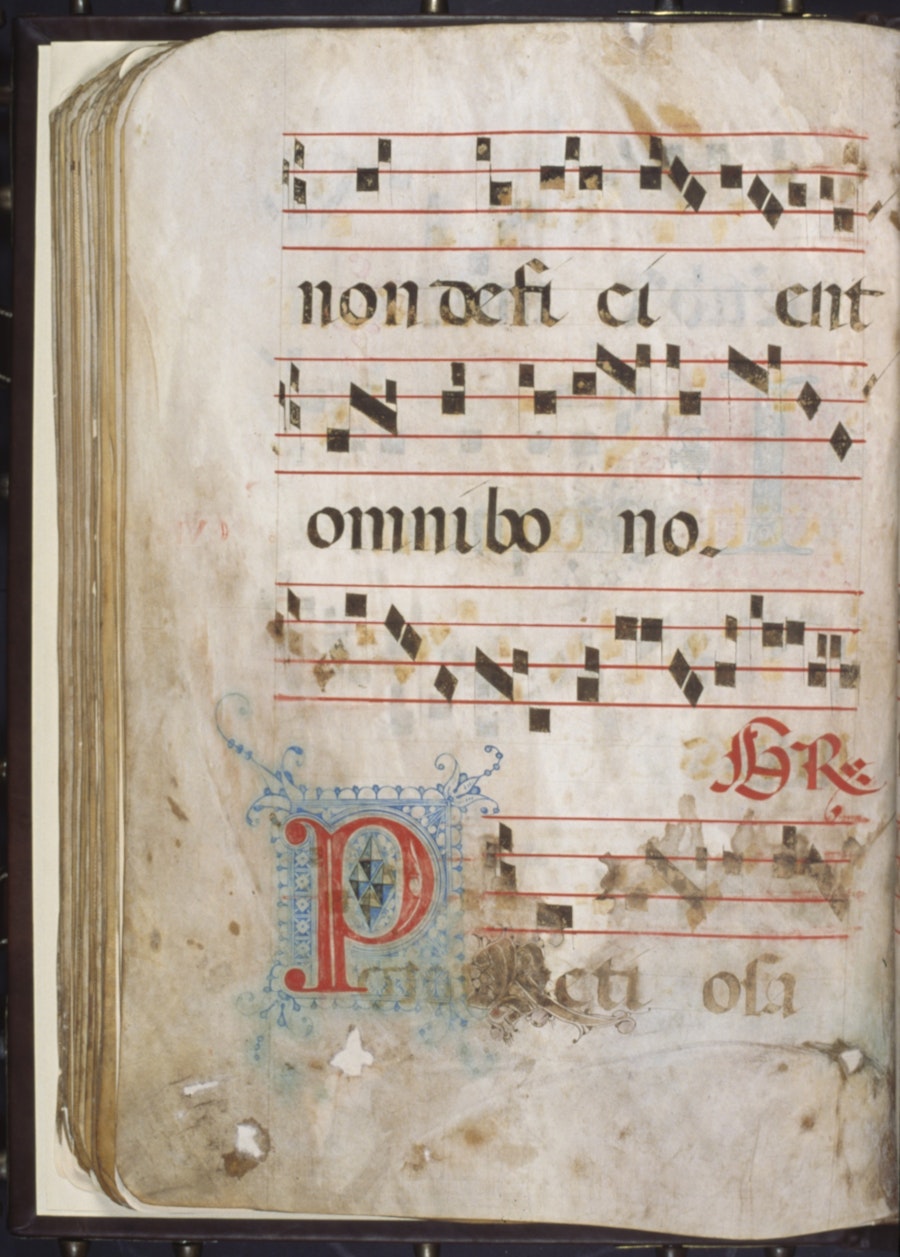 non defi ci ent
omni bo no.
GR
P cti osa